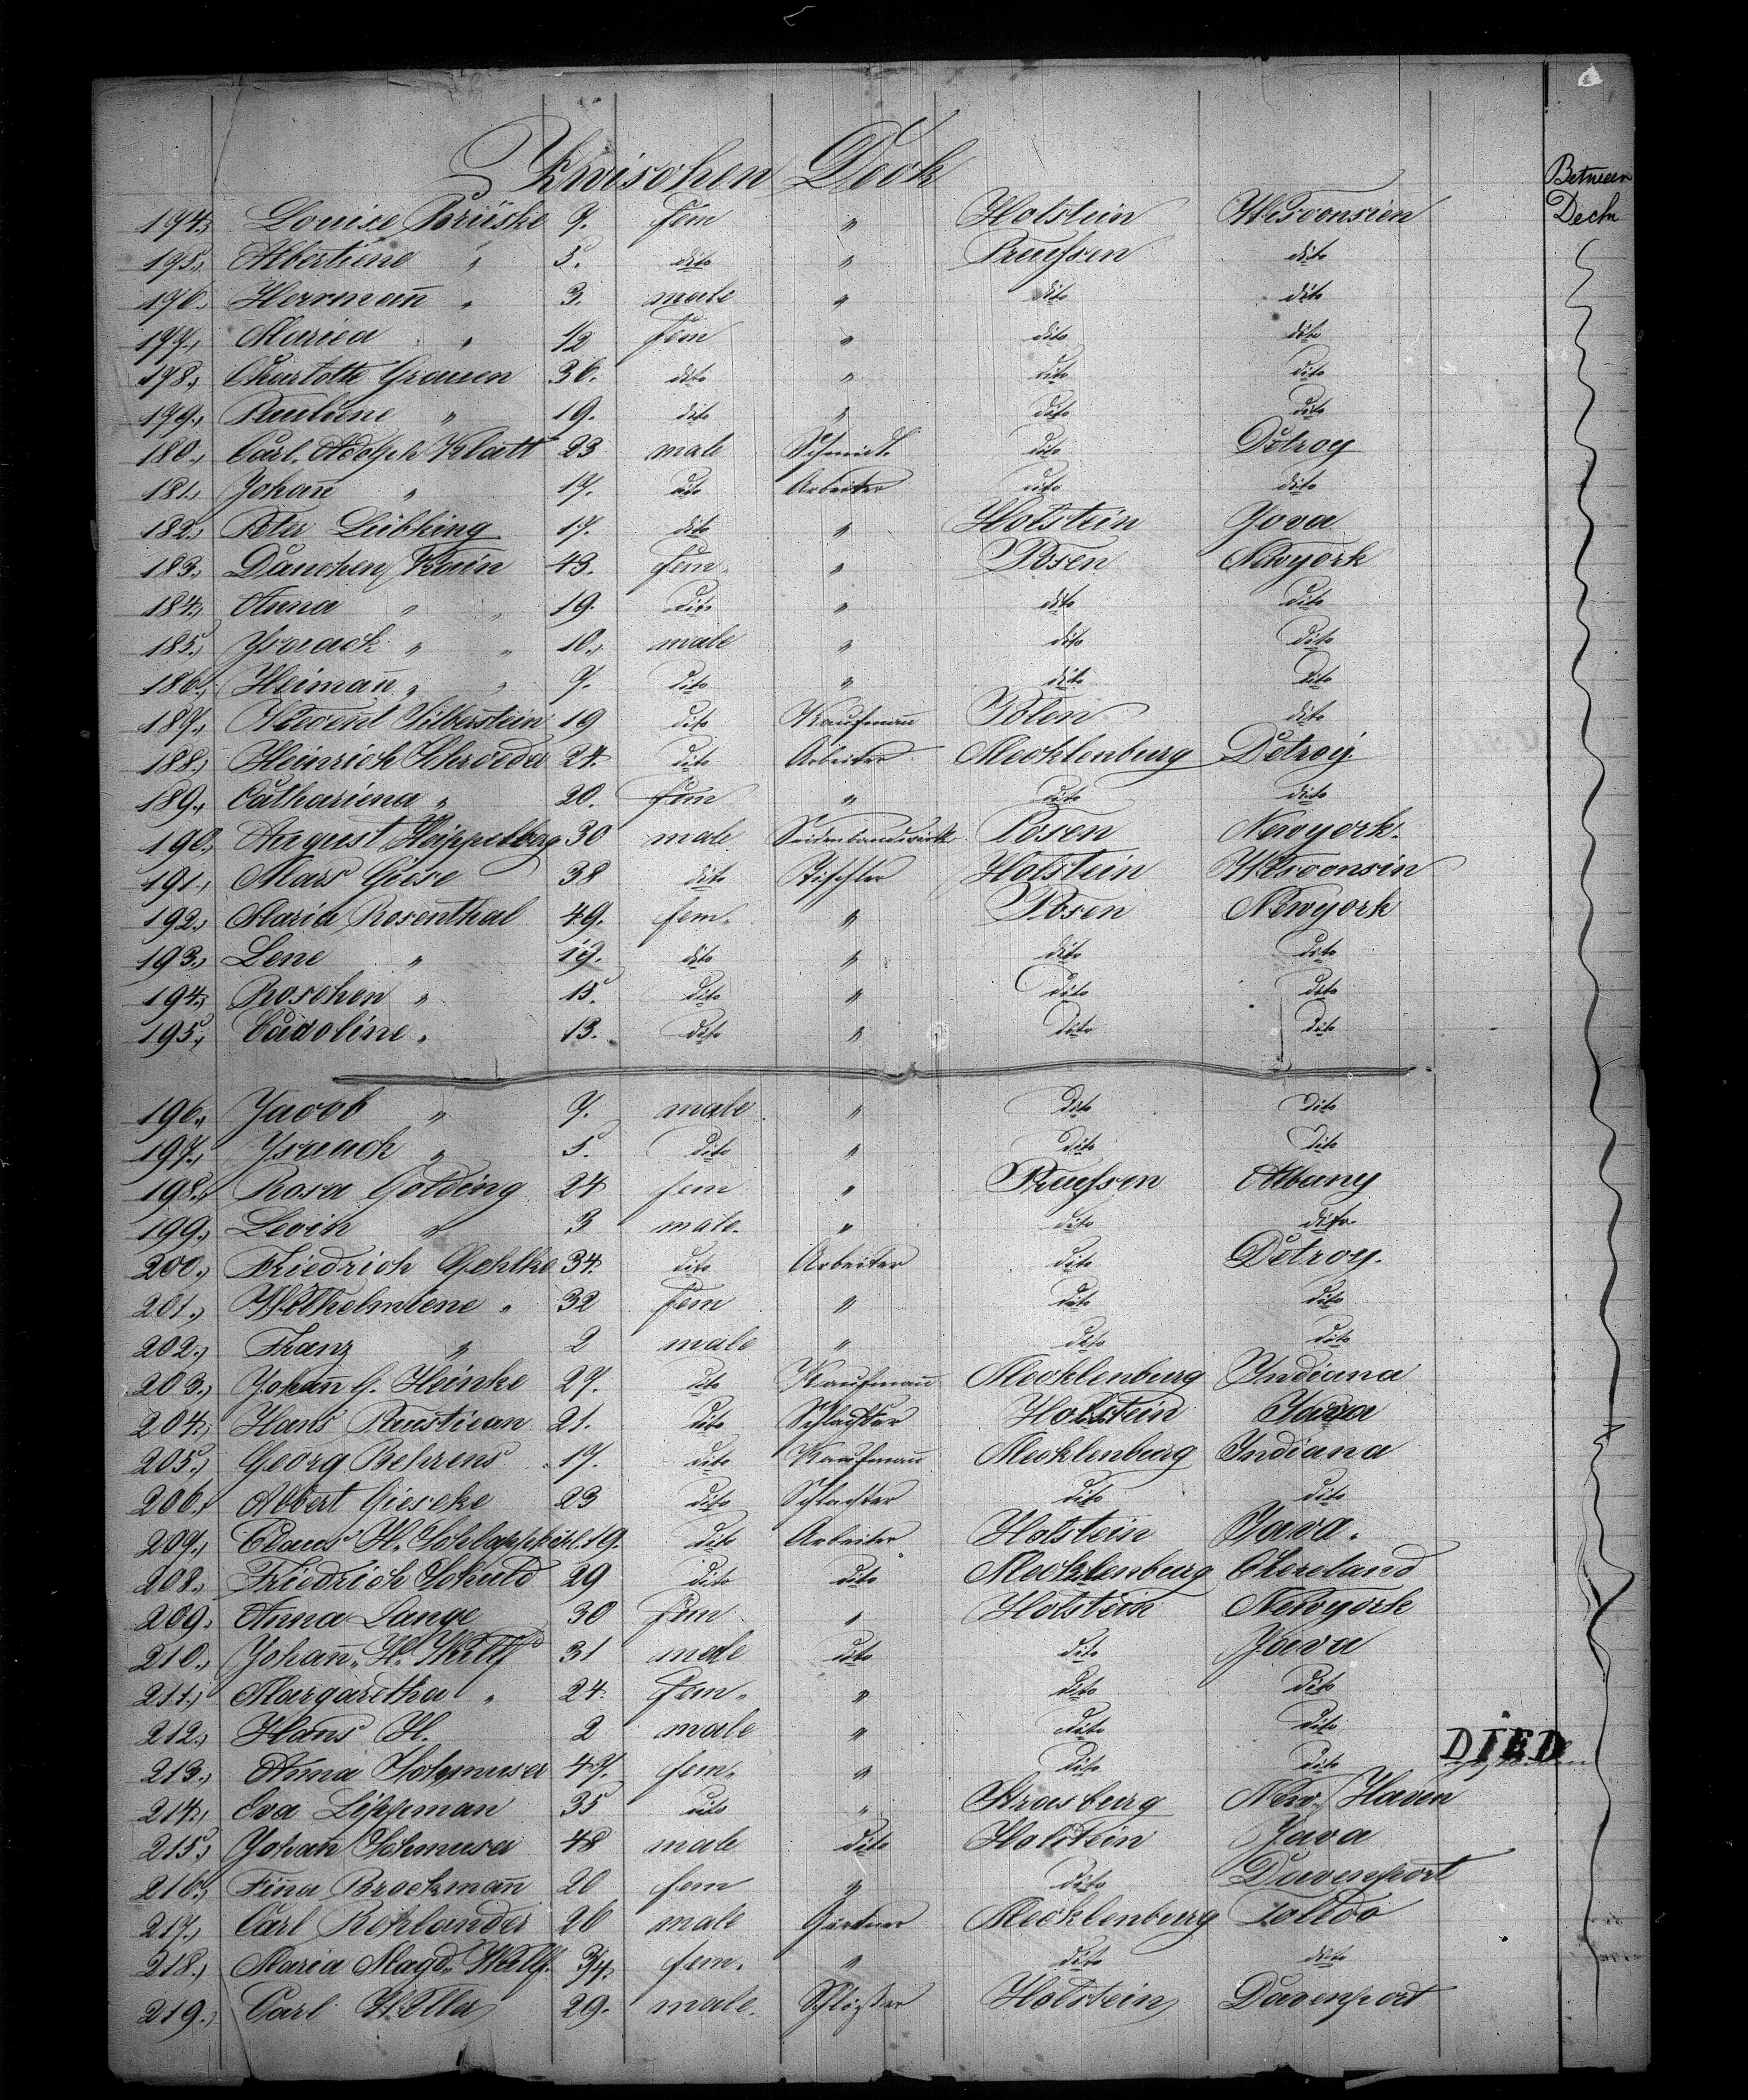 Zwischen Deck
Between Deck
174. Louise Brüske 9. fem " Holstein Wisconsien
175. Albertine " 5. dito " Preußen dito
176. Herrmañ " 3. male " dito dito
177. Mariea " 1/2 fem " dito dito
178. Charlotte Grauen 36. dito " dito dito
179. Pauline " 19. dito " dito dito
180. Carl Adolph Klatt 23 male Schmidt dito Detroy
181. Johañ " 17. dito Arbeiter dito dito
182. Peter Lübking 17. dito " Holstein Jova
183. Dänchen 43. fem. " Posen Newyork
184. Anna " " 19. dito " dito dito
185. Isaack " " 10. male " dito dito
186. Heimañ " " 9. dito " dito dito
187. Silberstein 19 dito Kaufmañ Polen dito
188. Heinrich Schroeder 24. dito Arbeiter Mecklenburg Detroy
189. Cathariena " 20. fem " dito dito
190. August Heippelberg 30 male Posen Newyork.
191. Mars Giese 38 dito Tischler Holstein Wisconsin
192. Maria Rosenthal 49. fem. " Posen Newyork
193. Lene " 19. dito " dito dito
194. Roschen " 15. dito " dito dito
195. " 13. dito " dito dito
196. Jacob " 9. male " dito dito
197. Isaack " 5. dito " dito dito
198. Rosa Golding 24 fem " Preußen Albany
199. Levin " 3 male. " dito dito
200. Friedrich Gehlke 34. dito Arbeiter dito Detroy.
201. Wilhelmiene " 32 fem " dito dito
202. Franz " 2 male " dito dito
203. Johañ G. Heinke 27. dito Kaufmañ Mecklenburg Indiana
204. Hans Paustiean 21. dito Schlachter Holstein Java
205. Georg Behrens 17. dito Kaufmañ Mecklenburg Indiana
206. Albert Gieseke 23 dito Schlachter dito dito
207. Claus H. 19. dito Arbeiter Holstein Java.
208. Friedrich Schuld 29 dito dito Mecklenburg Cleveland
209. Anna Lange 30 fem " Holstein Newyork
210. Johañ. H. Wulff 31 male dito dito Java
211. Margaretha " 24 fem. " dito dito
212. Hans H. 2 male " dito dito
213. Anna 47. fem. " dito dito DIED
214. Eva Lippman 35 dito " Strasburg New Haven
215. Johañ Schmuser 48 male dito Holstein Java
216. Fiña Brockmañ 20 fem " dito Davenport
217. Carl Rohlander 26 male Gärtner Mecklenburg Toledo
218. Maria Magd. Wulff. 3/4. fem. " dito dito
219. Carl 29. male. Schloßer Holstein Davenport